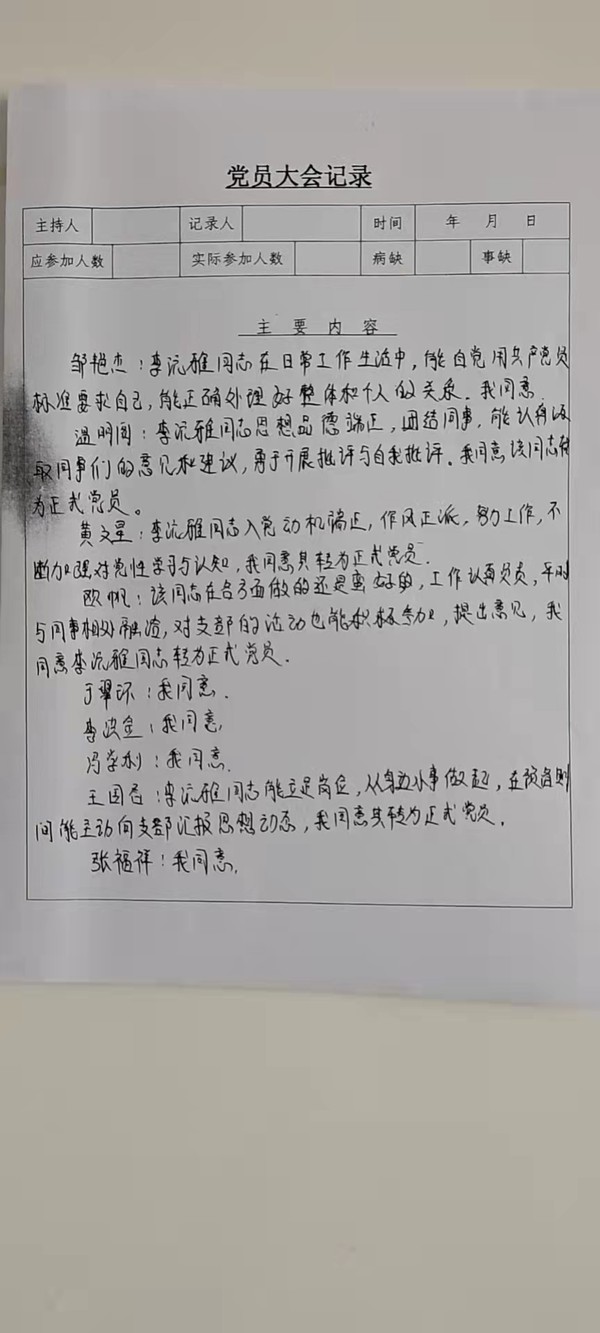 党员大会记录
主持人 记录人 时间 年 月 日
应参加人数 实际参加人数 病缺 事缺
主 要 内 容
邹艳杰：李沅雅同志在日常工作生活中，能自觉用共产党员
标准要求自己，能正确处理好整体和个人的关系．我同意．
温明阁：李沅雅同志思想品德端正，团结同事，能认真汲
取同事们的意见和建议，勇于开展批评与自我批评．我同意该同志转
为正式党员。
黄文星：李沅雅同志入党动机端正，作风正派，努力工作，不
断加强对党性学习与认知，我同意其转为正式党员．
欧帆：该同志在各方面做的还是蛮好的，工作认真负责，平时
与同事相处融洽，对支部的活动也能积极参加，提出意见，我
同意李沅雅同志转为正式党员．
于翠环：我同意．
李洪金：我同意，
冯学利：我同意．
王国君：李沅雅同志能立足岗位，从身边小事做起，在预备期
间能主动向支部汇报思想动态，我同意其转为正式党员．
张福祥：我同意．